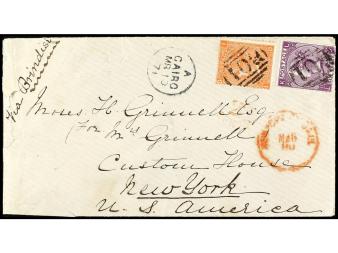 via Brindisi
A
CAIRO
MR 10
71
B01
B01
POSTAGE
Moses H. Grinnell Esq
(for Mrs Grinnell
Custom House
New York
U. S. America